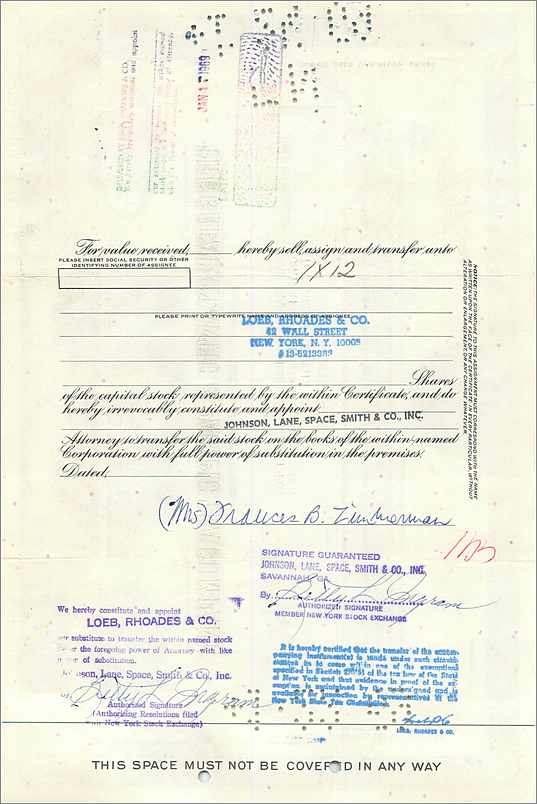 JAN 1 1969
For value received, hereby sell, assign and transfer unto
PLEASE INSERT SOCIAL SECURITY OR OTHER
IDENTIFYING NUMBER OF ASSIGNEE
1X12
PLEASE PRINT OR TYPEWRITE NAME AND ADDRESS OF ASSIGNEE
LOEB, RHOADES & CO.
42 WALL STREET
NEW YORK, N. Y. 10005
Shares
of the capital stock represented by the within Certificate, and do
hereby irrevocably constitute and appoint
JOHNSON, LANE, SPACE, SMITH & CO., INC.
Attorney to transfer the said stock on the books of the within-named
Corporation with full power of substitution in the premises.
Dated,
NOTICE: THE SIGNATURE TO THIS ASSIGNMENT MUST CORRESPOND WITH THE NAME
AS WRITTEN UPON THE FACE OF THE CERTIFICATE IN EVERY PARTICULAR, WITHOUT
ALTERATION OR ENLARGEMENT OR ANY CHANGE WHATEVER.
(Mrs) Frances B. Zimmerman
SIGNATURE GUARANTEED
JOHNSON, LANE, SPACE, SMITH & CO., INC.
SAVANNAH, GA.
By
AUTHORIZED SIGNATURE
MEMBER NEW YORK STOCK EXCHANGE
We hereby constitute and appoint
LOEB, RHOADES & CO.
substitute to transfer the within named stock
the foregoing power of Attorney with like
power of substitution.
Johnson, Lane, Space, Smith & Co., Inc.
Authorized Signature
(Authorizing Resolutions filed
New York Stock Exchange)
It is hereby certified that the transfer of the accom-
panying instrument(s) is made under such circum-
stances as to come within one of the exemptions
specified in Section 270 of the tax law of the State
of New York and that evidence in proof of the ex-
emption is maintained by the undersigned and is
available for inspection by representatives of the
New York State Tax Commission.
LOEB, RHOADES & CO.
THIS SPACE MUST NOT BE COVERED IN ANY WAY